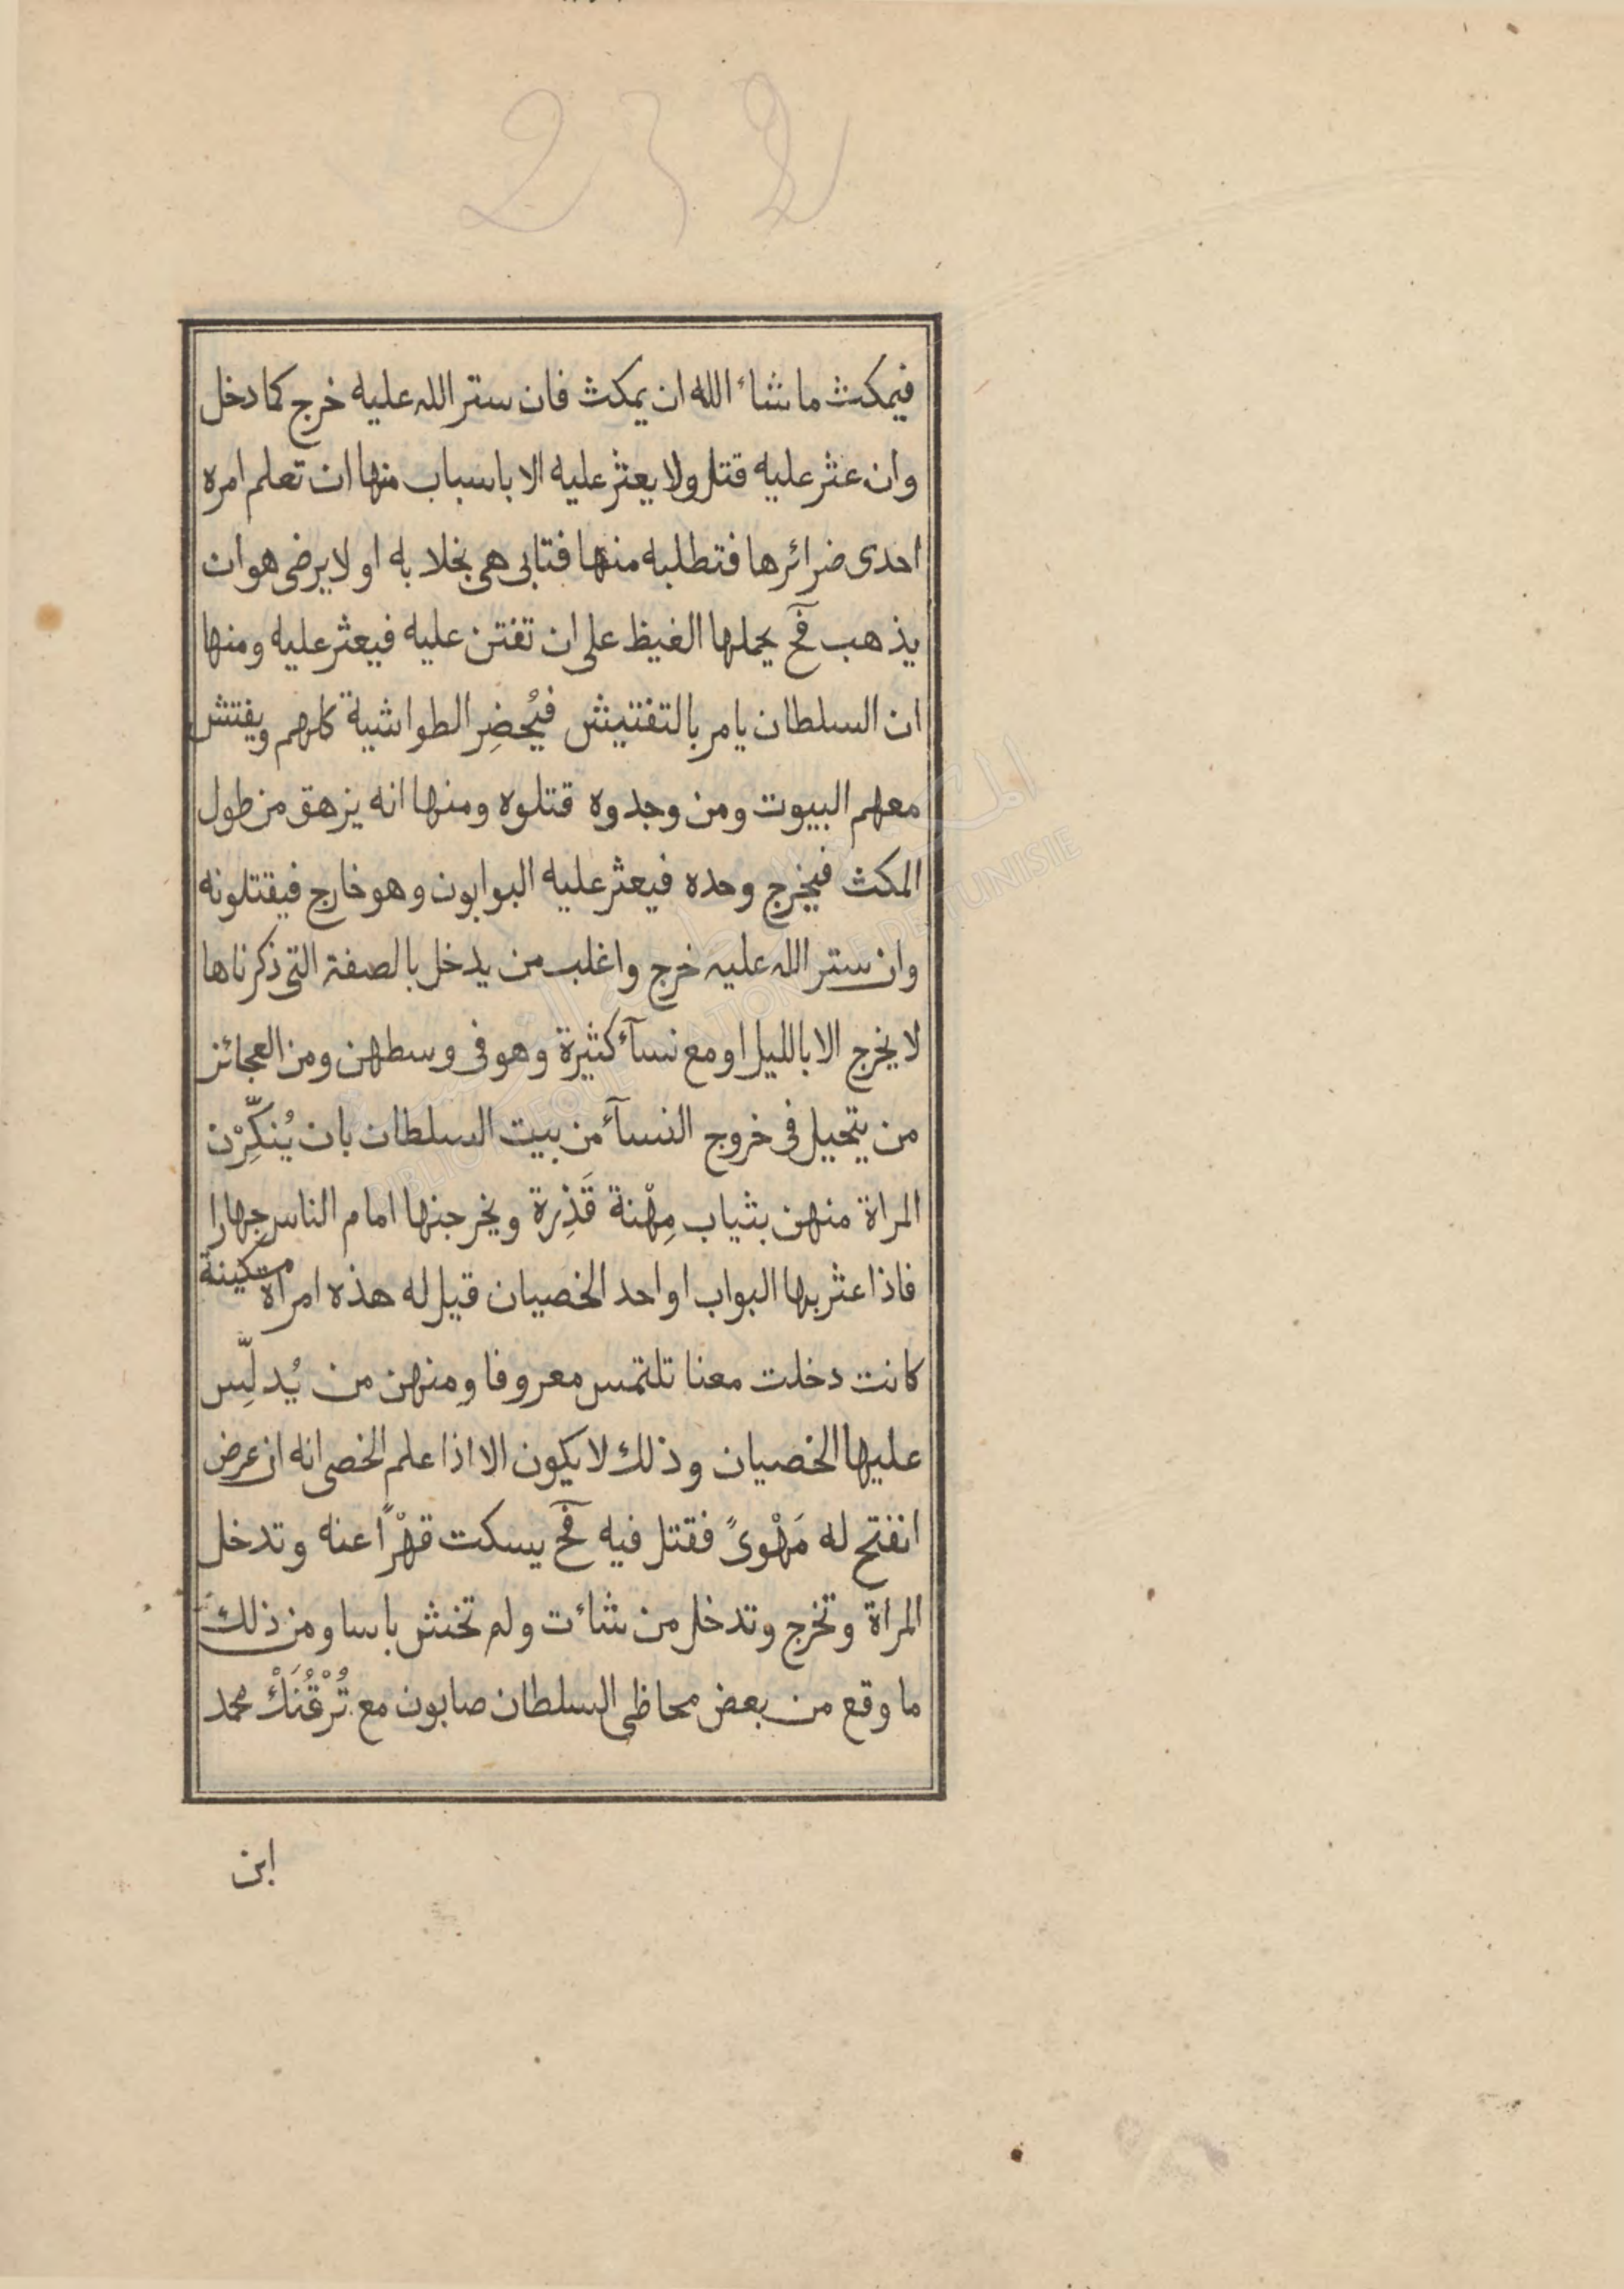 232
فيمكث ماشاء الله ان يمكث فان ستر الله عليه خرج كما دخل
وان عثر عليه قتل ولا يعثر عليه الا باسباب منها ان تعلم امره
احدى ضرائرها فتطلبه منها فتابى هى بخلا به او لا يرضى هو ان
يذهب فح يحملها الغيظ على ان تفتن عليه فيعثر عليه ومنها
ان السلطان يامر بالتفتيش فيُحضِر الطواشية كلهم ويفتش
معهم البيوت ومن وجدوه قتلوه ومنها انه يزهق من طول
المكث فيخرج وحده فيعثر عليه البوابون وهو خارج فيقتلونه
وان ستر الله عليه خرج واغلب من يدخل بالصفة التى ذكرناها
لا يخرج الا بالليل او مع نسآء كثيرة وهو فى وسطهن ومن العجائز
من يتحيل فى خروج النسآء من بيت السلطان بان يُنكِّرْن
المراة منهن بثياب مِهْنة قَذِرة ويخرجنها امام الناس جهارا
فاذا عثر بها البواب او احد الخصيان قيل له هذه امراة مسكينة
كانت دخلت معنا تلتمس معروفا ومنهن من يُدلِّس
عليها الخصيان وذلك لا يكون الا اذا علم الخصى انه ان عرض
انفتح له مَهْوىً فقتل فيه فح يسكت قهْراً عنه وتدخل
المراة وتخرج وتدخل من شاءت ولم تخش باسا ومن ذلك
ما وقع من بعض محاظى السلطان صابون مع تُرْقُنَكْ محمد
ابن
BIBLIOTHEQUE NATIONALE DE TUNISIE